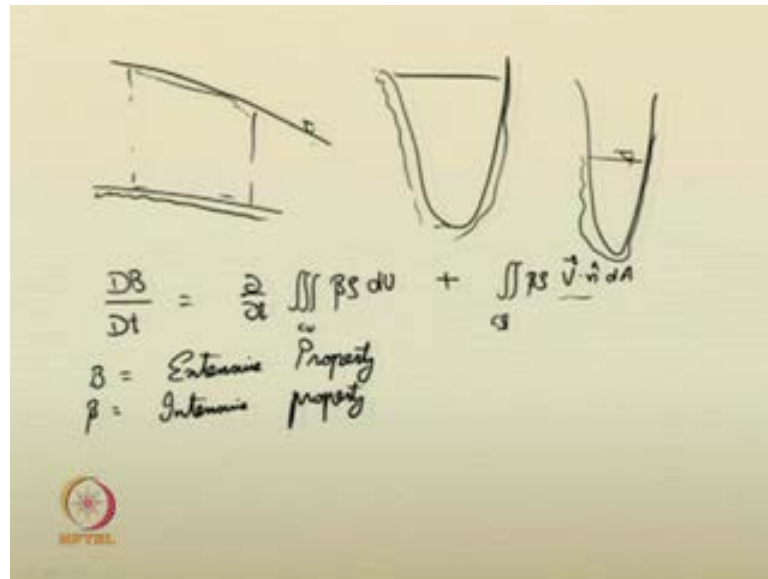 DB/Dt = ∂/∂t ∭cv βρ dV + ∬cs βρ V⃗·n̂ dA
B = Extensive Property
β = Intensive property
NPTEL